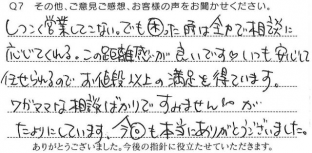 Q7 その他、ご意見ご感想、お客様の声をお聞かせください。
しつこく営業してこない。でも困った時は全力で相談に
応じてくれる。この距離感が良いです♡いつも安心して
任せられるので お値段以上の満足を得ています。
ワガママな相談ばかりですみません が
たよりにしています。今回も本当にありがとうございました。
ありがとうございました。今後の指針に役立たせていただきます。